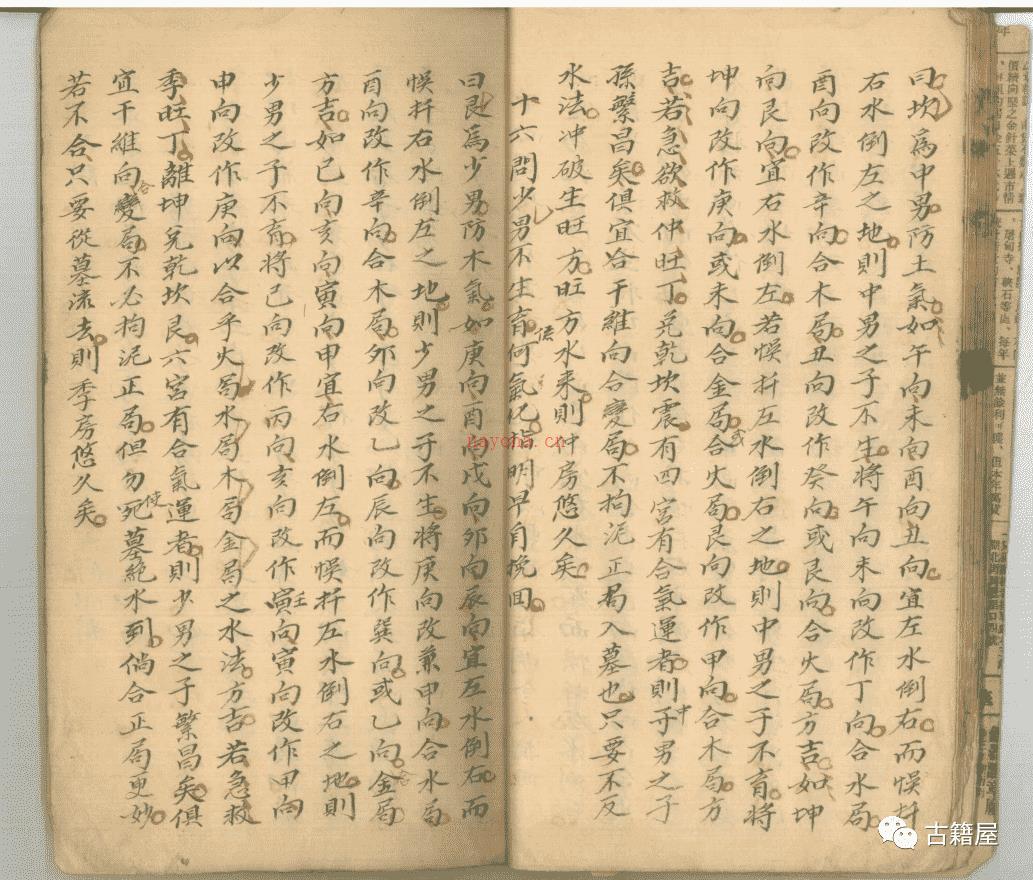 曰坎爲中男防土氣如午向未向酉向丑向宜左水倒右而悞扦
右水倒左之地則中男之子不生將午向未向改作丁向合水局
酉向改作辛向合木局丑向改作癸向或艮向合火局方吉如坤
向艮向宜右水倒左若悞扦左水倒右之地則中男之子不育將
坤向改作庚向或未向合金局或合火局艮向改作甲向合木局方
吉若急欲救仲旺丁兌乾坎震有四宮有合氣運者則中子男之子
孫繁昌矣俱宜合干維向合變局不拘泥正局入墓也只要不反
水法冲破生旺方旺方水來則仲房悠久矣
十六問少男不生育何氣化指明早自挽回
曰艮爲少男防木氣如庚向酉向戌向卯向辰向宜左水倒右而
悞扦右水倒左之地則少男之子不生將庚向改兼申向合水局
酉向改作辛向合木局卯向改乙向辰向改作巽向或乙向合金局
方吉如巳向亥向寅向申宜右水倒左而悞扦左水倒右之地則
少男之子不育將巳向改作丙向亥向改作壬向寅向改作甲向
申向改作庚向以合乎火局水局木局金局之水法方吉若急救
季旺丁離坤兌乾坎艮六宮有合氣運者則少男之子繁昌矣俱
宜干維向合變局不必拘泥正局但勿使死墓絶水到倘合正局更妙
若不合只要從墓流去則季房悠久矣
nayona.cn
古籍屋